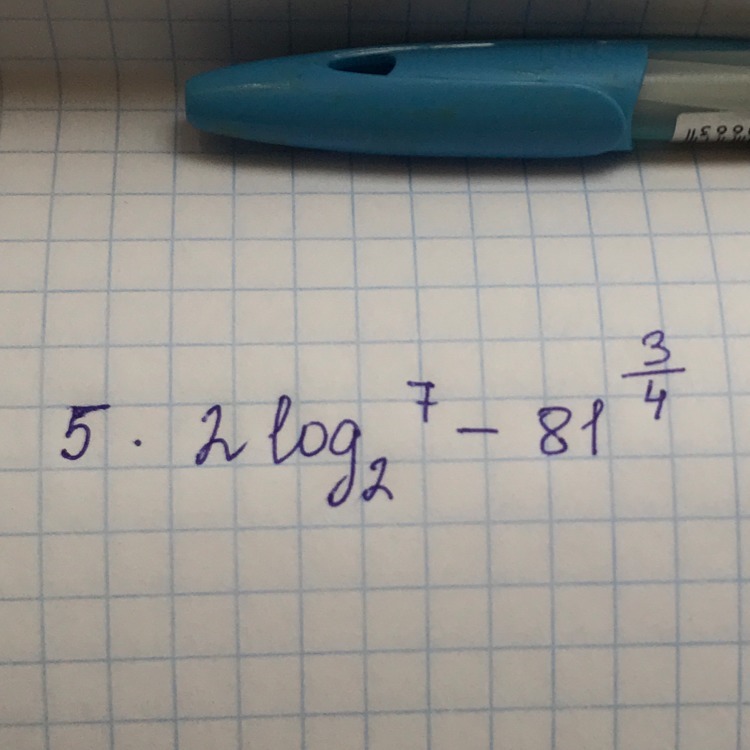 5 · 2 log₂⁷ − 81^(3/4)